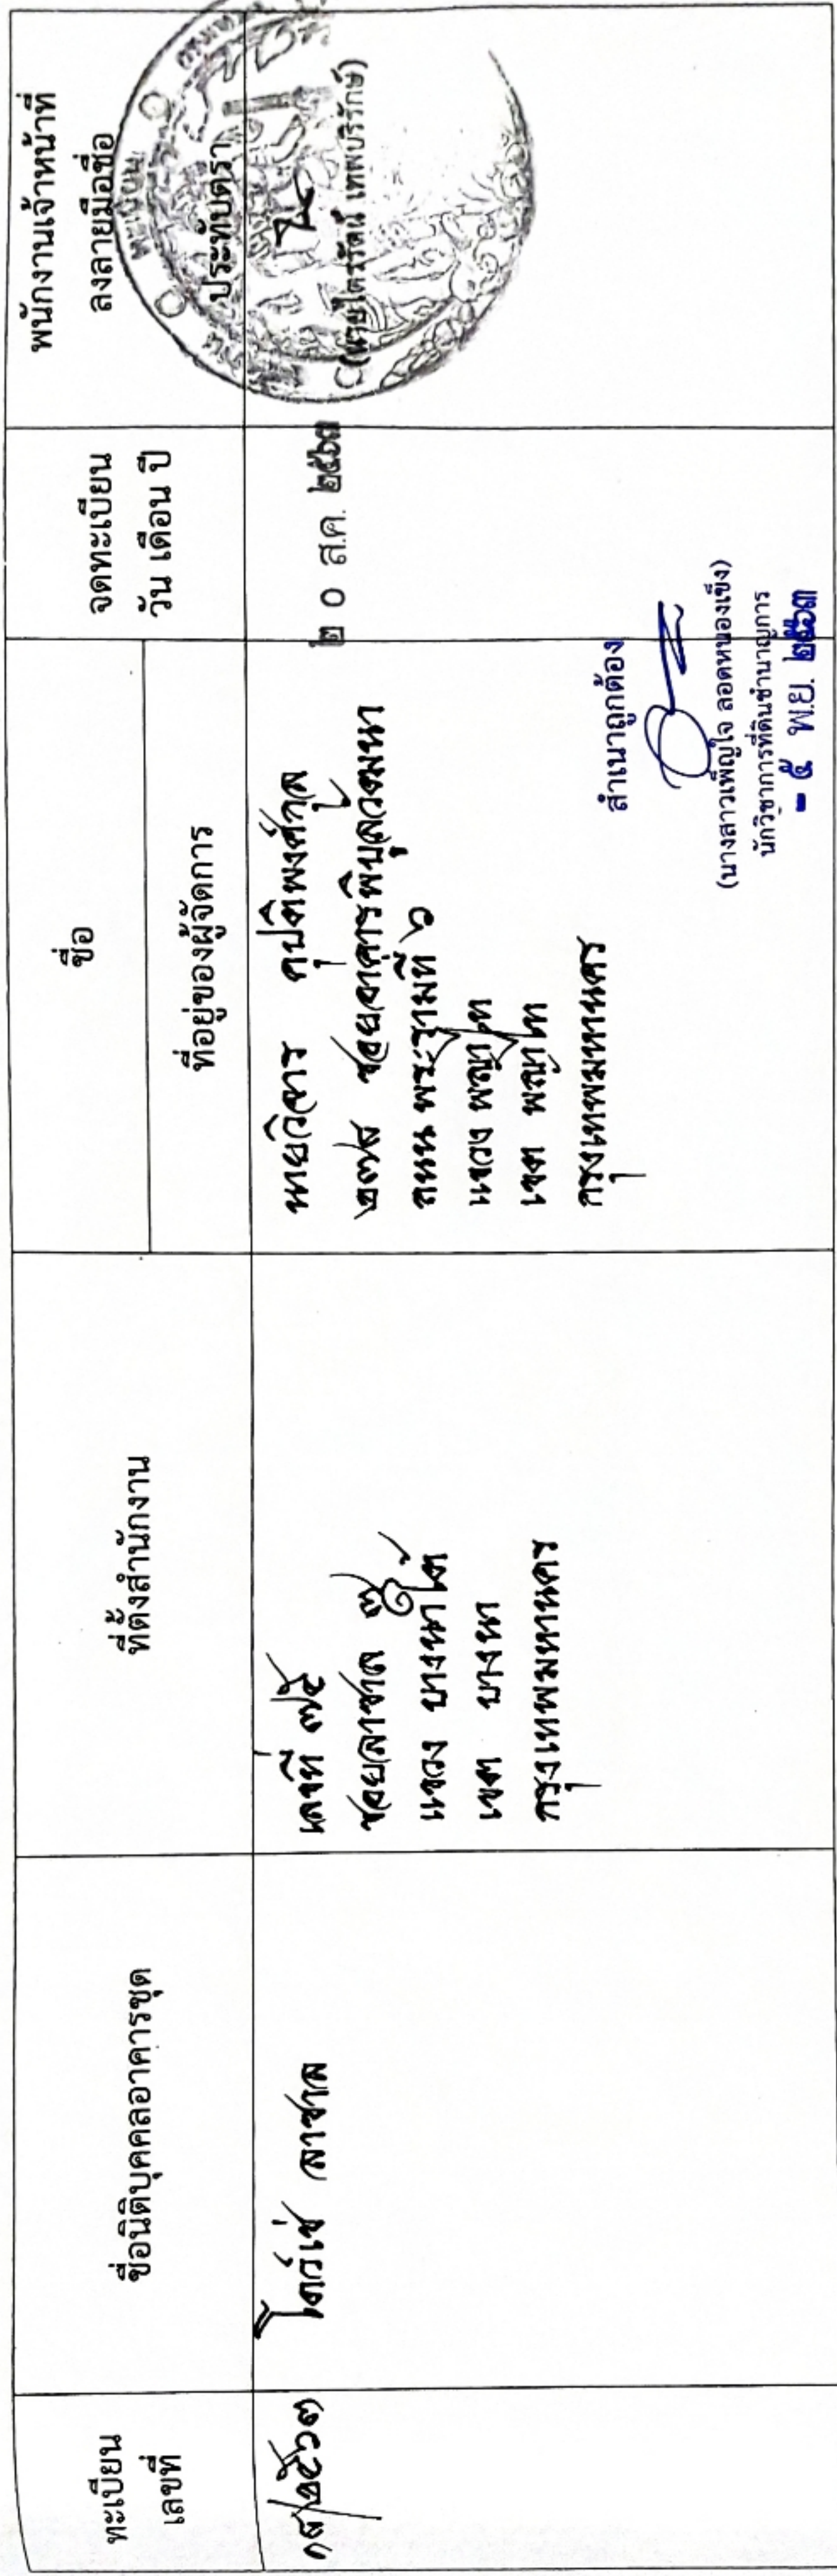 ทะเบียน
เลขที่
ชื่อนิติบุคคลอาคารชุด
ที่ตั้งสำนักงาน
ชื่อ
ที่อยู่ของผู้จัดการ
จดทะเบียน
วัน เดือน ปี
พนักงานเจ้าหน้าที่
ลงลายมือชื่อ
ประทับตรา
ลาซาล
เลขที่ ๗๕
ซอยลาซาล
แขวง บางนาใต้
เขต บางนา
กรุงเทพมหานคร
นายวิจาร
ซอยอาคารพิบูลวัฒนา
ถนน พระรามที่ ๖
แขวง พญาไท
เขต พญาไท
กรุงเทพมหานคร
๒ ๐ ส.ค. ๒๕๖๓
(นายไตรรัตน์ เทพบริรักษ์)
สำเนาถูกต้อง
(นางสาวเพ็ญใจ ลอดหนองเข็ง)
นักวิชาการที่ดินชำนาญการ
- ๕ พ.ย. ๒๕๖๓